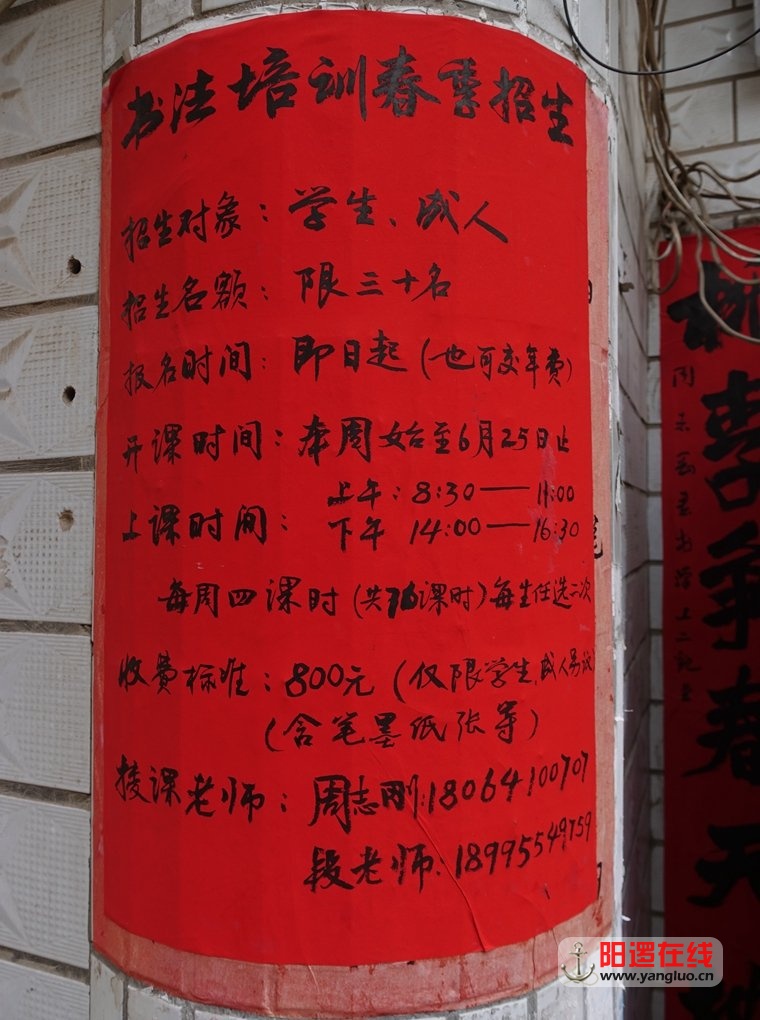 书法培训春季招生
招生对象：学生、成人
招生名额：限三十名
报名时间：即日起（也可交年费）
开课时间：本周始至6月25日止
上课时间：上午：8:30——11:00
下午 14:00——16:30
每周四课时（共76课时）每生任选二次
收费标准：800元（仅限学生，成人另议）
（含笔墨纸张等）
授课老师：周志刚：18064100707
段老师：18995549759
桃
李
争
春
天
阳逻在线
www.yangluo.cn